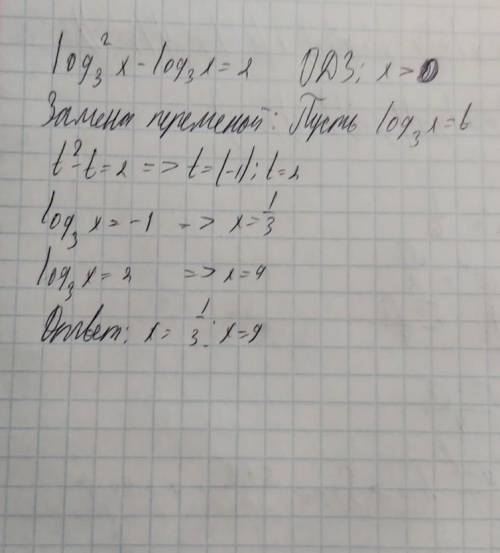 log₃²x - log₃x = 2 ОДЗ: x > 0
Замена переменой: Пусть log₃x = t
t² - t = 2 => t = (-1); t = 2
log₃x = -1 -> x = 1/3
log₃x = 2 => x = 9
Ответ: x = 1/3; x = 9